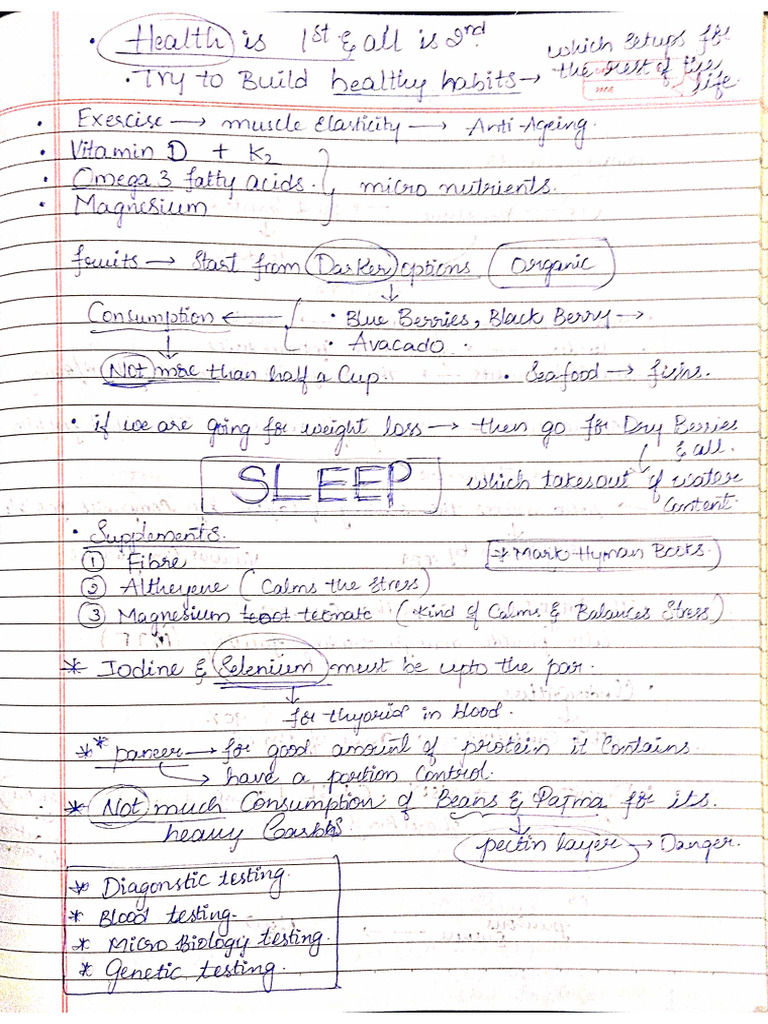 • Health is 1st & all is 2nd
• Try to Build healthy habits → which setups for the rest of the life.
• Exercise → muscle Elasticity → Anti-Ageing.
• Vitamin D + K2
• Omega 3 fatty acids. micro nutrients.
• Magnesium
fruits → Start from Darker options Organic
Consumption ← • Blue Berries, Black Berry →
• Avacado
Not more than half a Cup. • Seafood →
• if we are going for weight loss → then go for Dry Berries & all.
SLEEP which takes out of water Content
• Supplements.
① Fibre → Mark Hyman Books
② Altheyene (Calms the Stress)
③ Magnesium teonate (Kind of Calms & Balances Stress)
* Iodine & Selenium must be upto the par.
↓ for thyorid in blood.
** paneer → for good amount of protein it contains
→ have a portion Control.
* Not much Consumption of Beans & Rajma for its
heavy Carbs
pectin layer → Danger.
* Diagonstic testing.
* Blood testing.
* Micro Biology testing.
* Genetic testing.